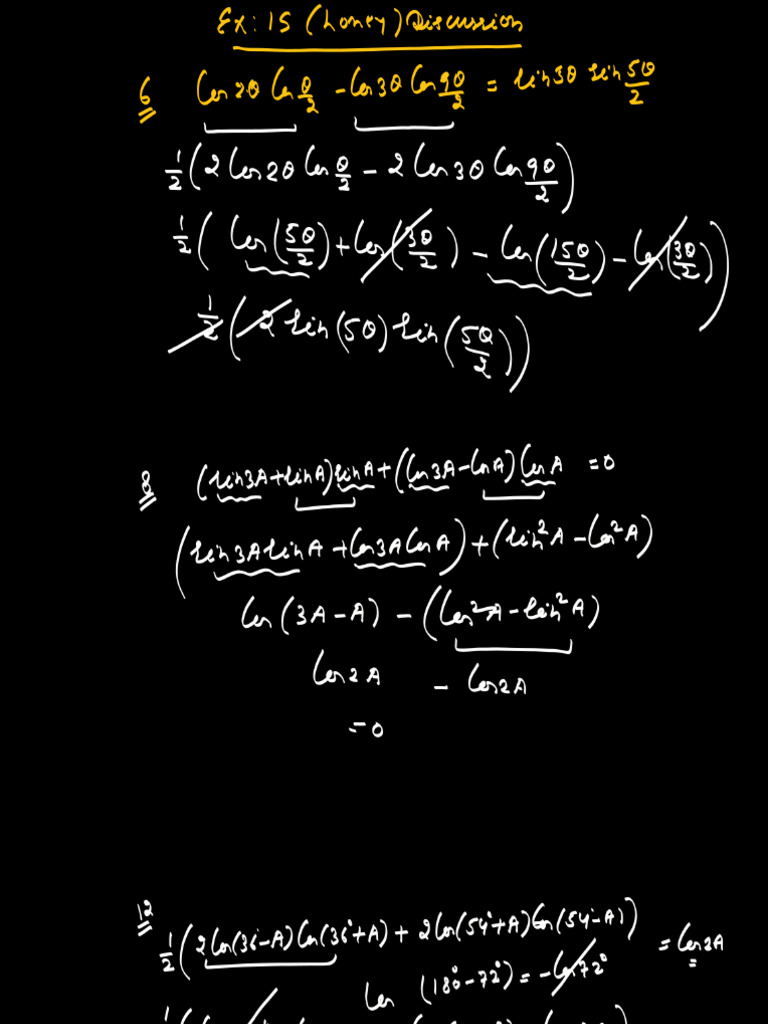 Ex: 15 (Loney) Discussion
6 Cos 2θ Cos θ/2 - Cos 3θ Cos 9θ/2 = sin 3θ sin 5θ/2
1/2 (2 Cos 2θ Cos θ/2 - 2 Cos 3θ Cos 9θ/2)
1/2 ( Cos (5θ/2) + Cos (3θ/2) - Cos (15θ/2) - Cos (3θ/2) )
1/2 ( 2 sin (5θ) sin (5θ/2) )
8 (sin 3A + sin A) sin A + (Cos 3A - Cos A) Cos A = 0
(sin 3A sin A + Cos 3A Cos A) + (sin²A - Cos²A)
Cos (3A - A) - (Cos²A - sin²A)
Cos 2A - Cos 2A
= 0
12
1/2 (2 Cos (36° - A) Cos (36° + A) + 2 Cos (54° + A) Cos (54° - A)) = Cos 2A
Cos (180° - 72°) = - Cos 72°